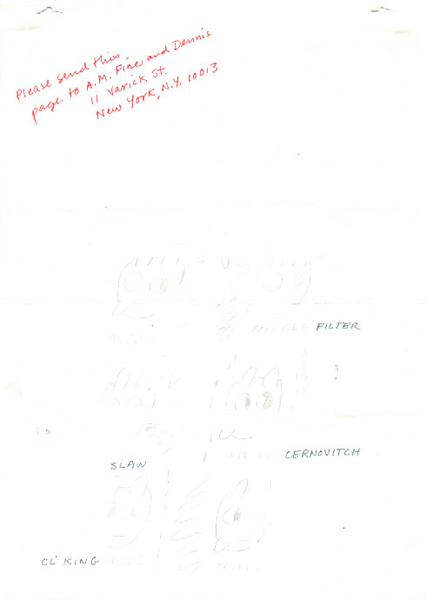 Please send this
page to A.M. Fine and Dennis
11 Varick St.
New York, N.Y. 10013
FILTER
SLAW
CERNOVITCH
CL' KING